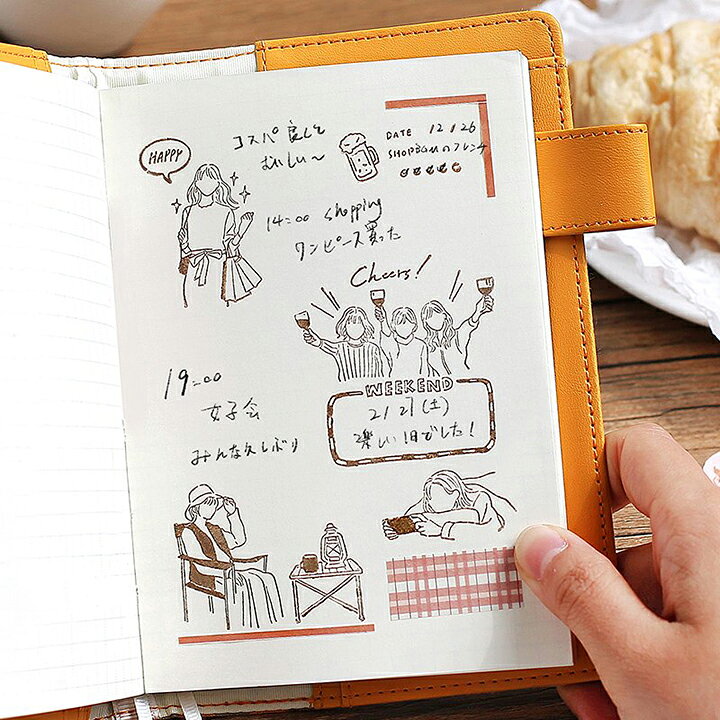 HAPPY
コスパ良くて
おいしい〜
DATE 12/26
SHOP BAUのフレンチ
14:00 shopping
ワンピース買った
Cheers!
19:00
女子会
みんな久しぶり
WEEKEND
2/27(土)
楽しい1日でした!